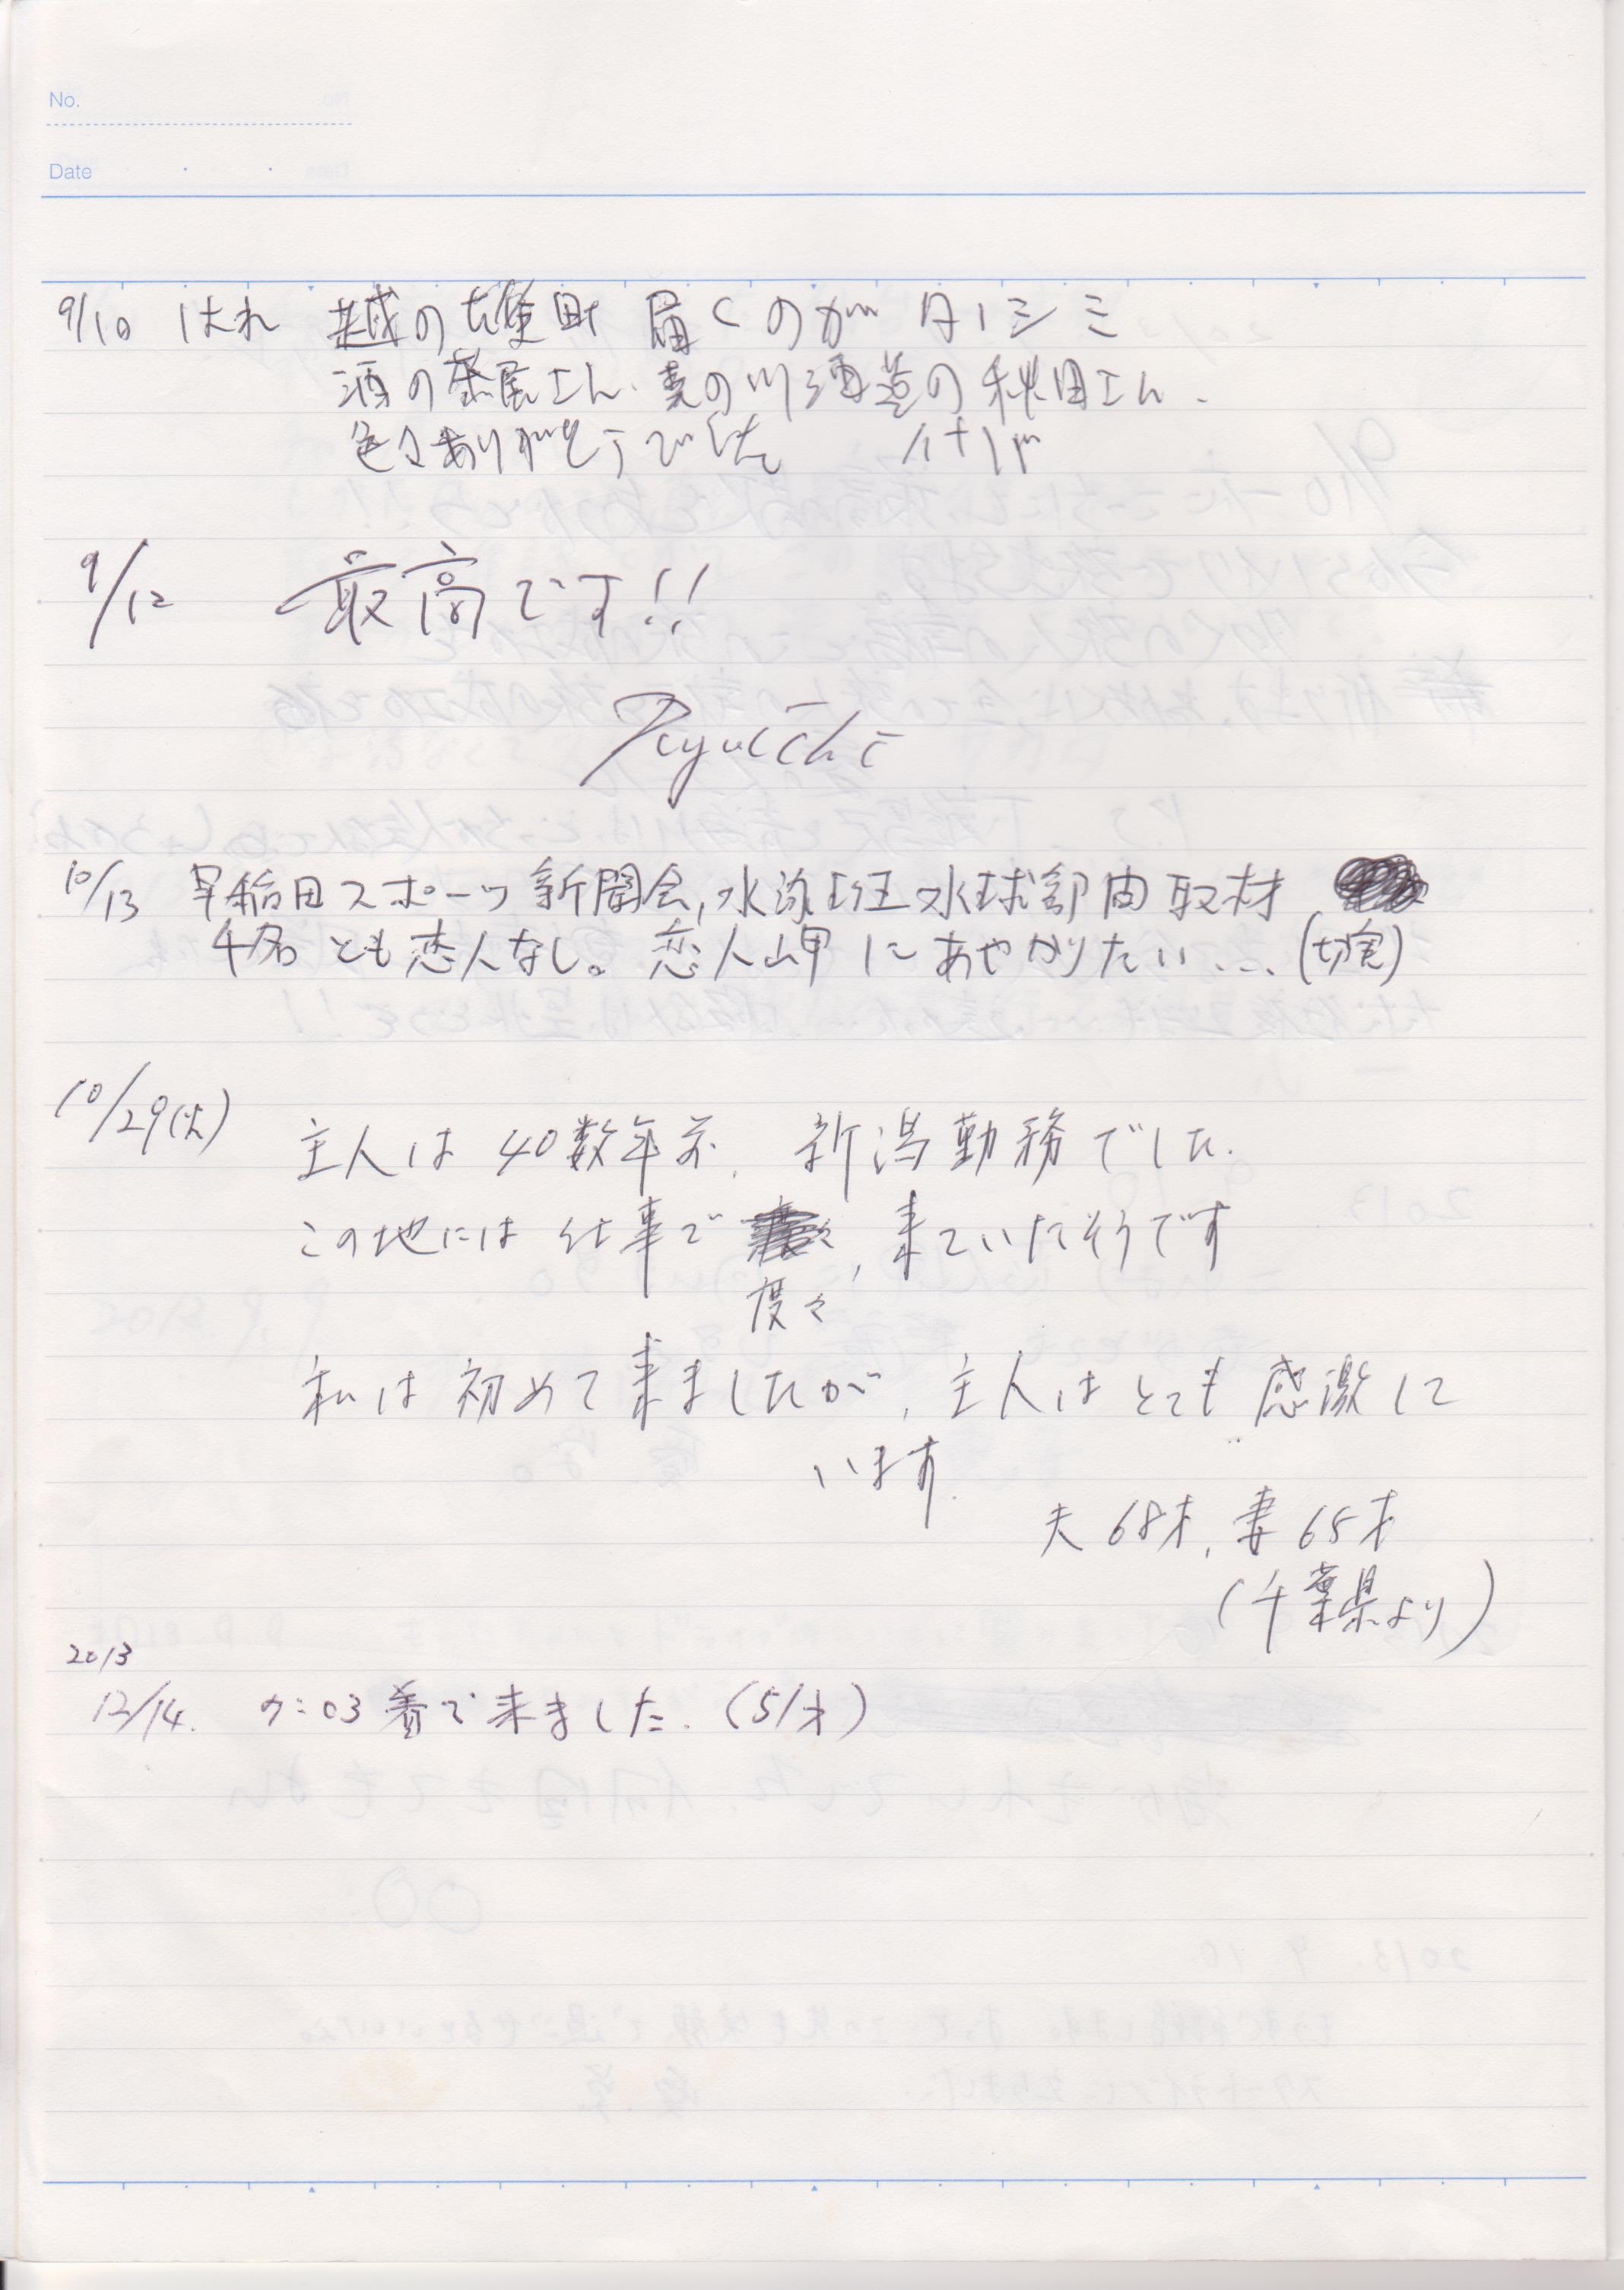 No.
Date
9/10 はれ 越の雄町 届くのが タノシミ
酒の茶屋さん、葵の川酒造の秋田さん、
色々ありがとうでした
9/12 最高です!!
Ryuichi
10/13 早稲田スポーツ新聞会,水泳班水球部門取材
4名とも恋人なし。恋人岬にあやかりたい...(切実)
10/29(火)
主人は40数年前、新潟勤務でした.
この地には仕事で , 来ていたそうです
度々
私は初めて来ましたが, 主人はとても感激して
います.
夫68才, 妻65才
(千葉県より)
2013
12/14. 7:03着で来ました.(51才)